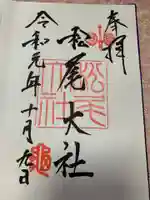 奉拝
松尾大社
令和元年十月九日